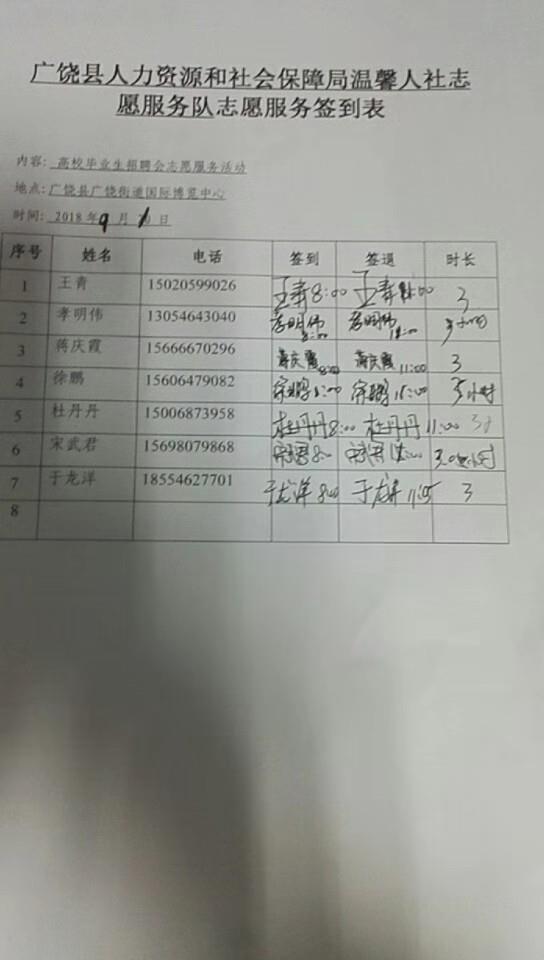 广饶县人力资源和社会保障局温馨人社志
愿服务队志愿服务签到表
内容: 高校毕业生招聘会志愿服务活动
地点: 广饶县广饶街道国际博览中心
时间: 2018 年 9 月 日
序号 姓名 电话 签到 签退 时长
1 王青 15020599026 王青 8:00 王青 3
2 李明伟 13054643040 李明伟 8:00 李明伟
3 蒋庆霞 15666670296 蒋庆霞 8:00 蒋庆霞 11:00 3
4 徐鹏 15606479082 徐鹏 8:00 徐鹏 11:00 3小时
5 杜丹丹 15006873958 杜丹丹 8:00 杜丹丹 11:00 3
6 宋武君 15698079868 宋武君 8:00 宋武君
7 于龙洋 18554627701 于龙洋 8:00 于龙洋 11:05 3
8